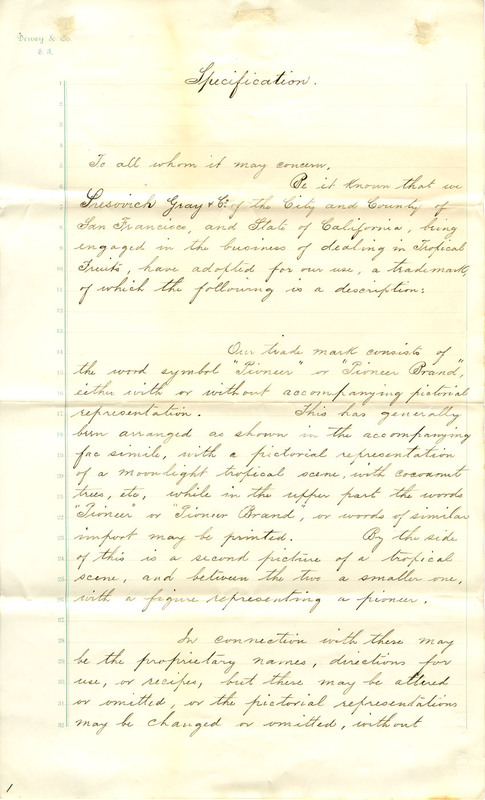 Dewey & Co.
S. F.
Specification.
1
2
3
4
5
6
7
8
9
10
11
12
13
14
15
16
17
18
19
20
21
22
23
24
25
26
27
28
29
30
31
32
To all whom it may concern,
Be it Known that we
Sresovich Gray & Co. of the City and County of
San Francisco, and State of California, being
engaged in the business of dealing in Tropical
Fruits, have adopted for our use, a trademark,
of which the following is a description:
Our trade mark consists of
the word symbol "Pioneer" or "Pioneer Brand",
either with or without accompanying pictorial
representation. This has generally
been arranged as shown in the accompanying
fac simile, with a pictorial representation
of a moonlight tropical scene, with cocoanut
trees, etc, while in the upper part the words
"Pioneer" or "Pioneer Brand", or words of similar
import may be printed. By the side
of this is a second picture of a tropical
scene, and between the two a smaller one,
with a figure representing a pioneer.
In connection with these may
be the proprietary names, directions for
use, or recipes, but these may be altered
or omitted, or the pictorial representations
may be changed or omitted, without
1